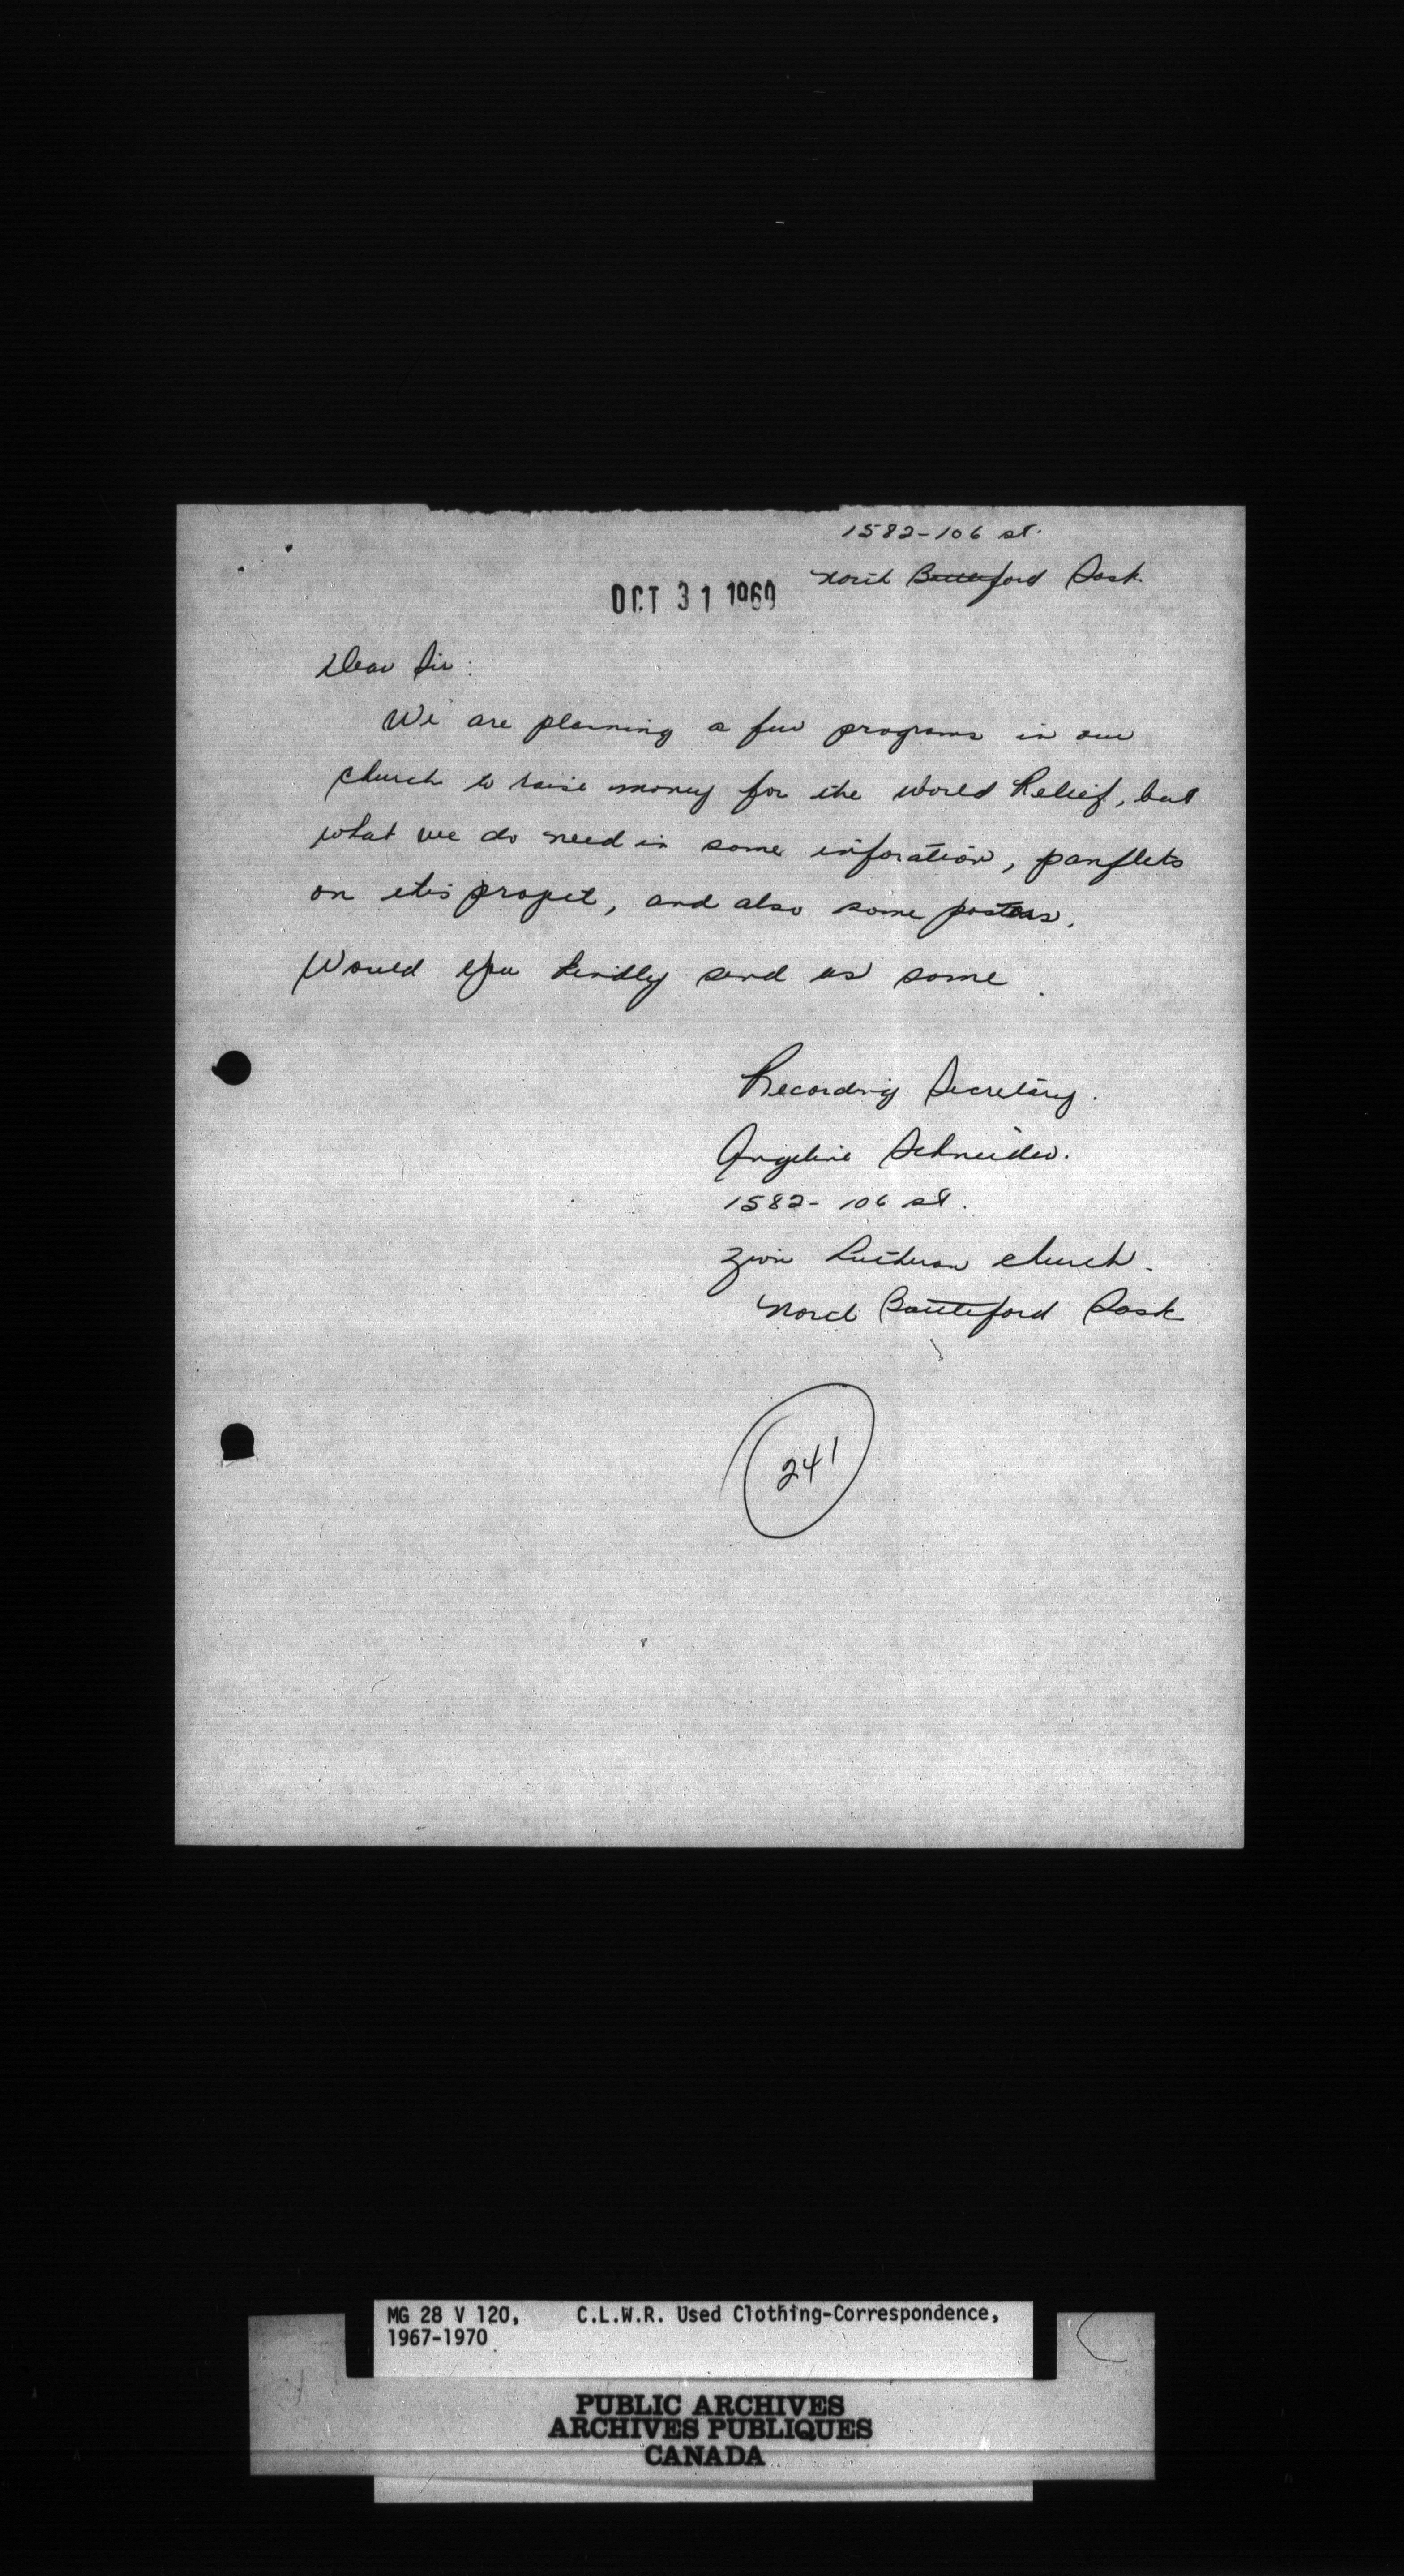 1582-106 st.
North Battleford Sask.
OCT 31 1969
Dear Sir:
We are planning a few programs in our
church to raise money for the World Relief, but
what we do need is some inforation, panflets
on this projet, and also some posters.
Would you kindly send us some.
Recording Secretary.
Angeline Schneider.
1582-106 st.
Zion Lutheran church.
North Battleford Sask
241
MG 28 V 120, C.L.W.R. Used Clothing-Correspondence,
1967-1970
PUBLIC ARCHIVES
ARCHIVES PUBLIQUES
CANADA